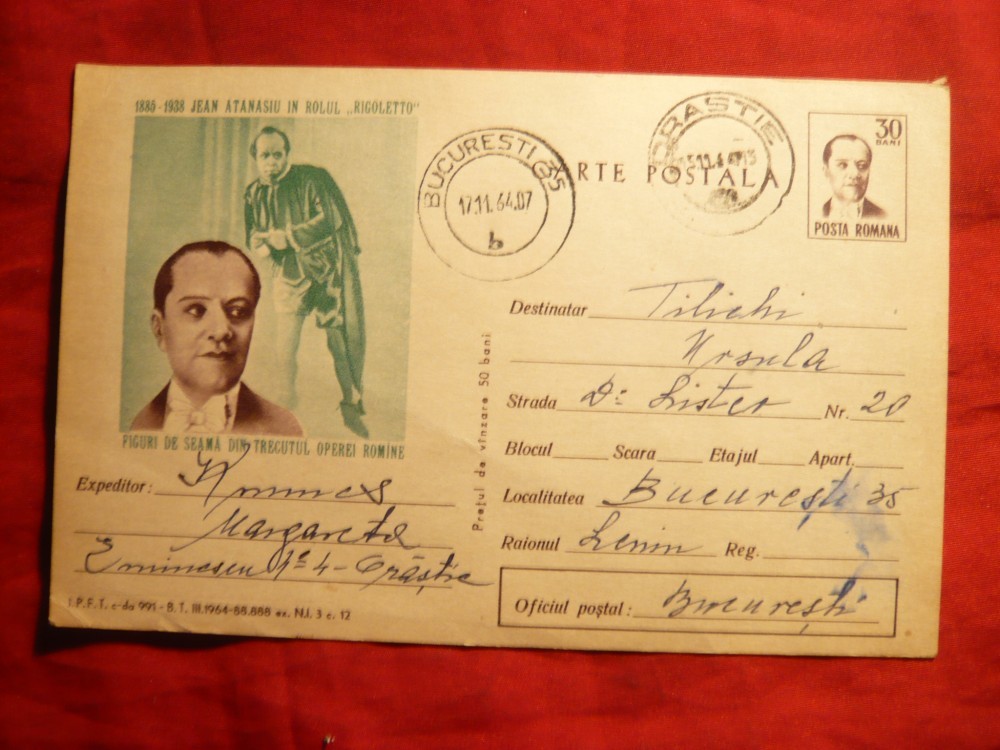 1885-1938 JEAN ATANASIU IN ROLUL „RIGOLETTO"
FIGURI DE SEAMĂ DIN TRECUTUL OPEREI ROMÎNE
BUCUREȘTI 35
17.11.64.07
b
CARTE POSTALA
ORASTIE
30
BANI
POSTA ROMANA
Destinatar Tilichi
Ursula
Strada Dr Lister Nr. 20
Blocul Scara Etajul Apart.
Localitatea București 35
Raionul Lenin Reg.
Oficiul poștal: București
Prețul de vînzare 50 bani
Expeditor:
Margareta
Eminescu Nr 4 - Orăștie
I.P.F.T. c-da 991 - B.T. III.1964-88.888 ex. N.I. 3 c. 12